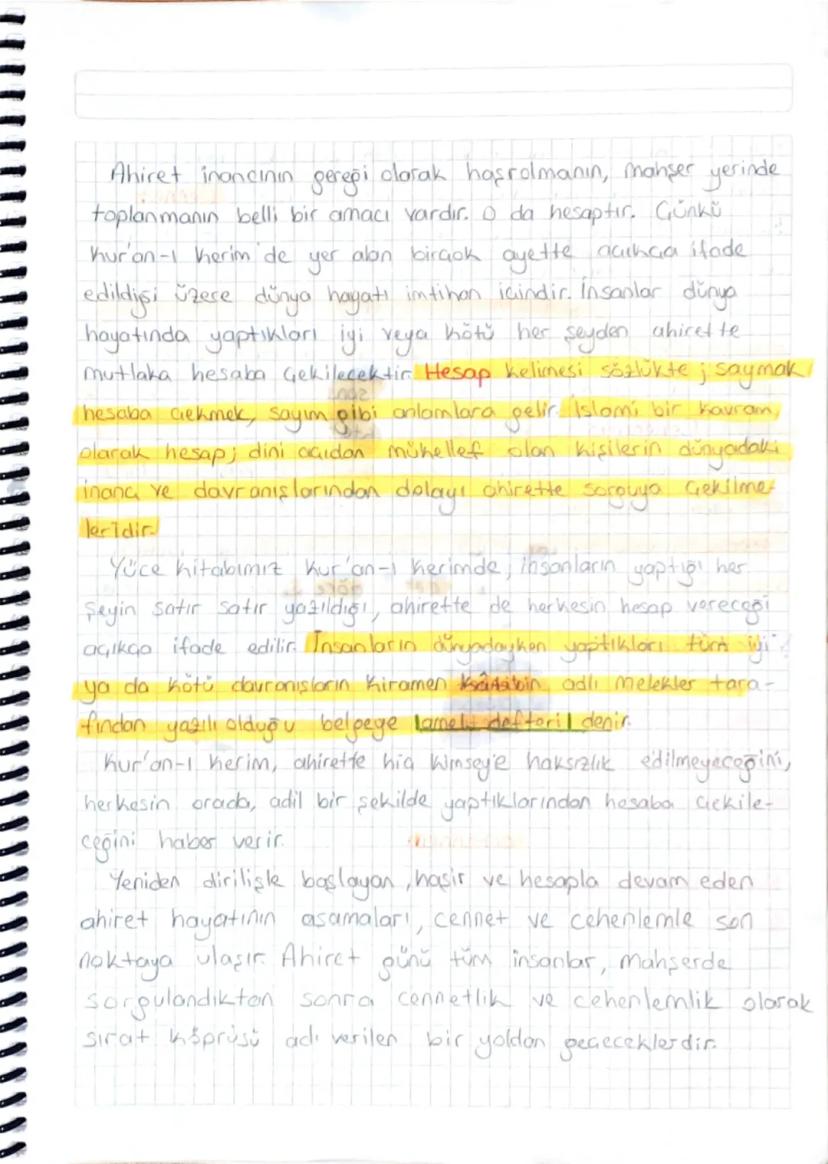 Ahiret inancının gereği olarak haşrolmanın, mahşer yerinde
toplanmanın belli bir amacı vardır. O da hesaptır. Çünkü
Kur'an-ı Kerim'de yer alan birçok ayette açıkça ifade
edildiği üzere dünya hayatı imtihan içindir. İnsanlar dünya
hayatında yaptıkları iyi veya kötü her şeyden ahirette
mutlaka hesaba çekilecektir. Hesap kelimesi sözlükte; saymak
hesaba çekmek, sayım gibi anlamlara gelir. İslami bir kavram
olarak hesap; dini açıdan mükellef olan kişilerin dünyadaki
inanç ve davranışlarından dolayı ahirette sorguya çekilme-
leridir.
Yüce kitabımız Kur'an-ı Kerimde; insanların yaptığı her
şeyin satır satır yazıldığı, ahirette de herkesin hesap vereceği
açıkça ifade edilir. İnsanların dünyadayken yaptıkları tüm iyi
ya da kötü davranışların Kiramen Kâtibin adlı melekler tara-
fından yazılı olduğu belgeye "amel defteri" denir.
Kur'an-ı Kerim, ahirette hiç kimseye haksızlık edilmeyeceğini,
herkesin orada, adil bir şekilde yaptıklarından hesaba çekile-
ceğini haber verir.
Yeniden dirilişle başlayan, haşir ve hesapla devam eden
ahiret hayatının aşamaları, cennet ve cehenlemle son
noktaya ulaşır. Ahiret günü tüm insanlar, mahşerde
sorgulandıktan sonra cennetlik ve cehenlemlik olarak
sırat köprüsü adı verilen bir yoldan geçeceklerdir.